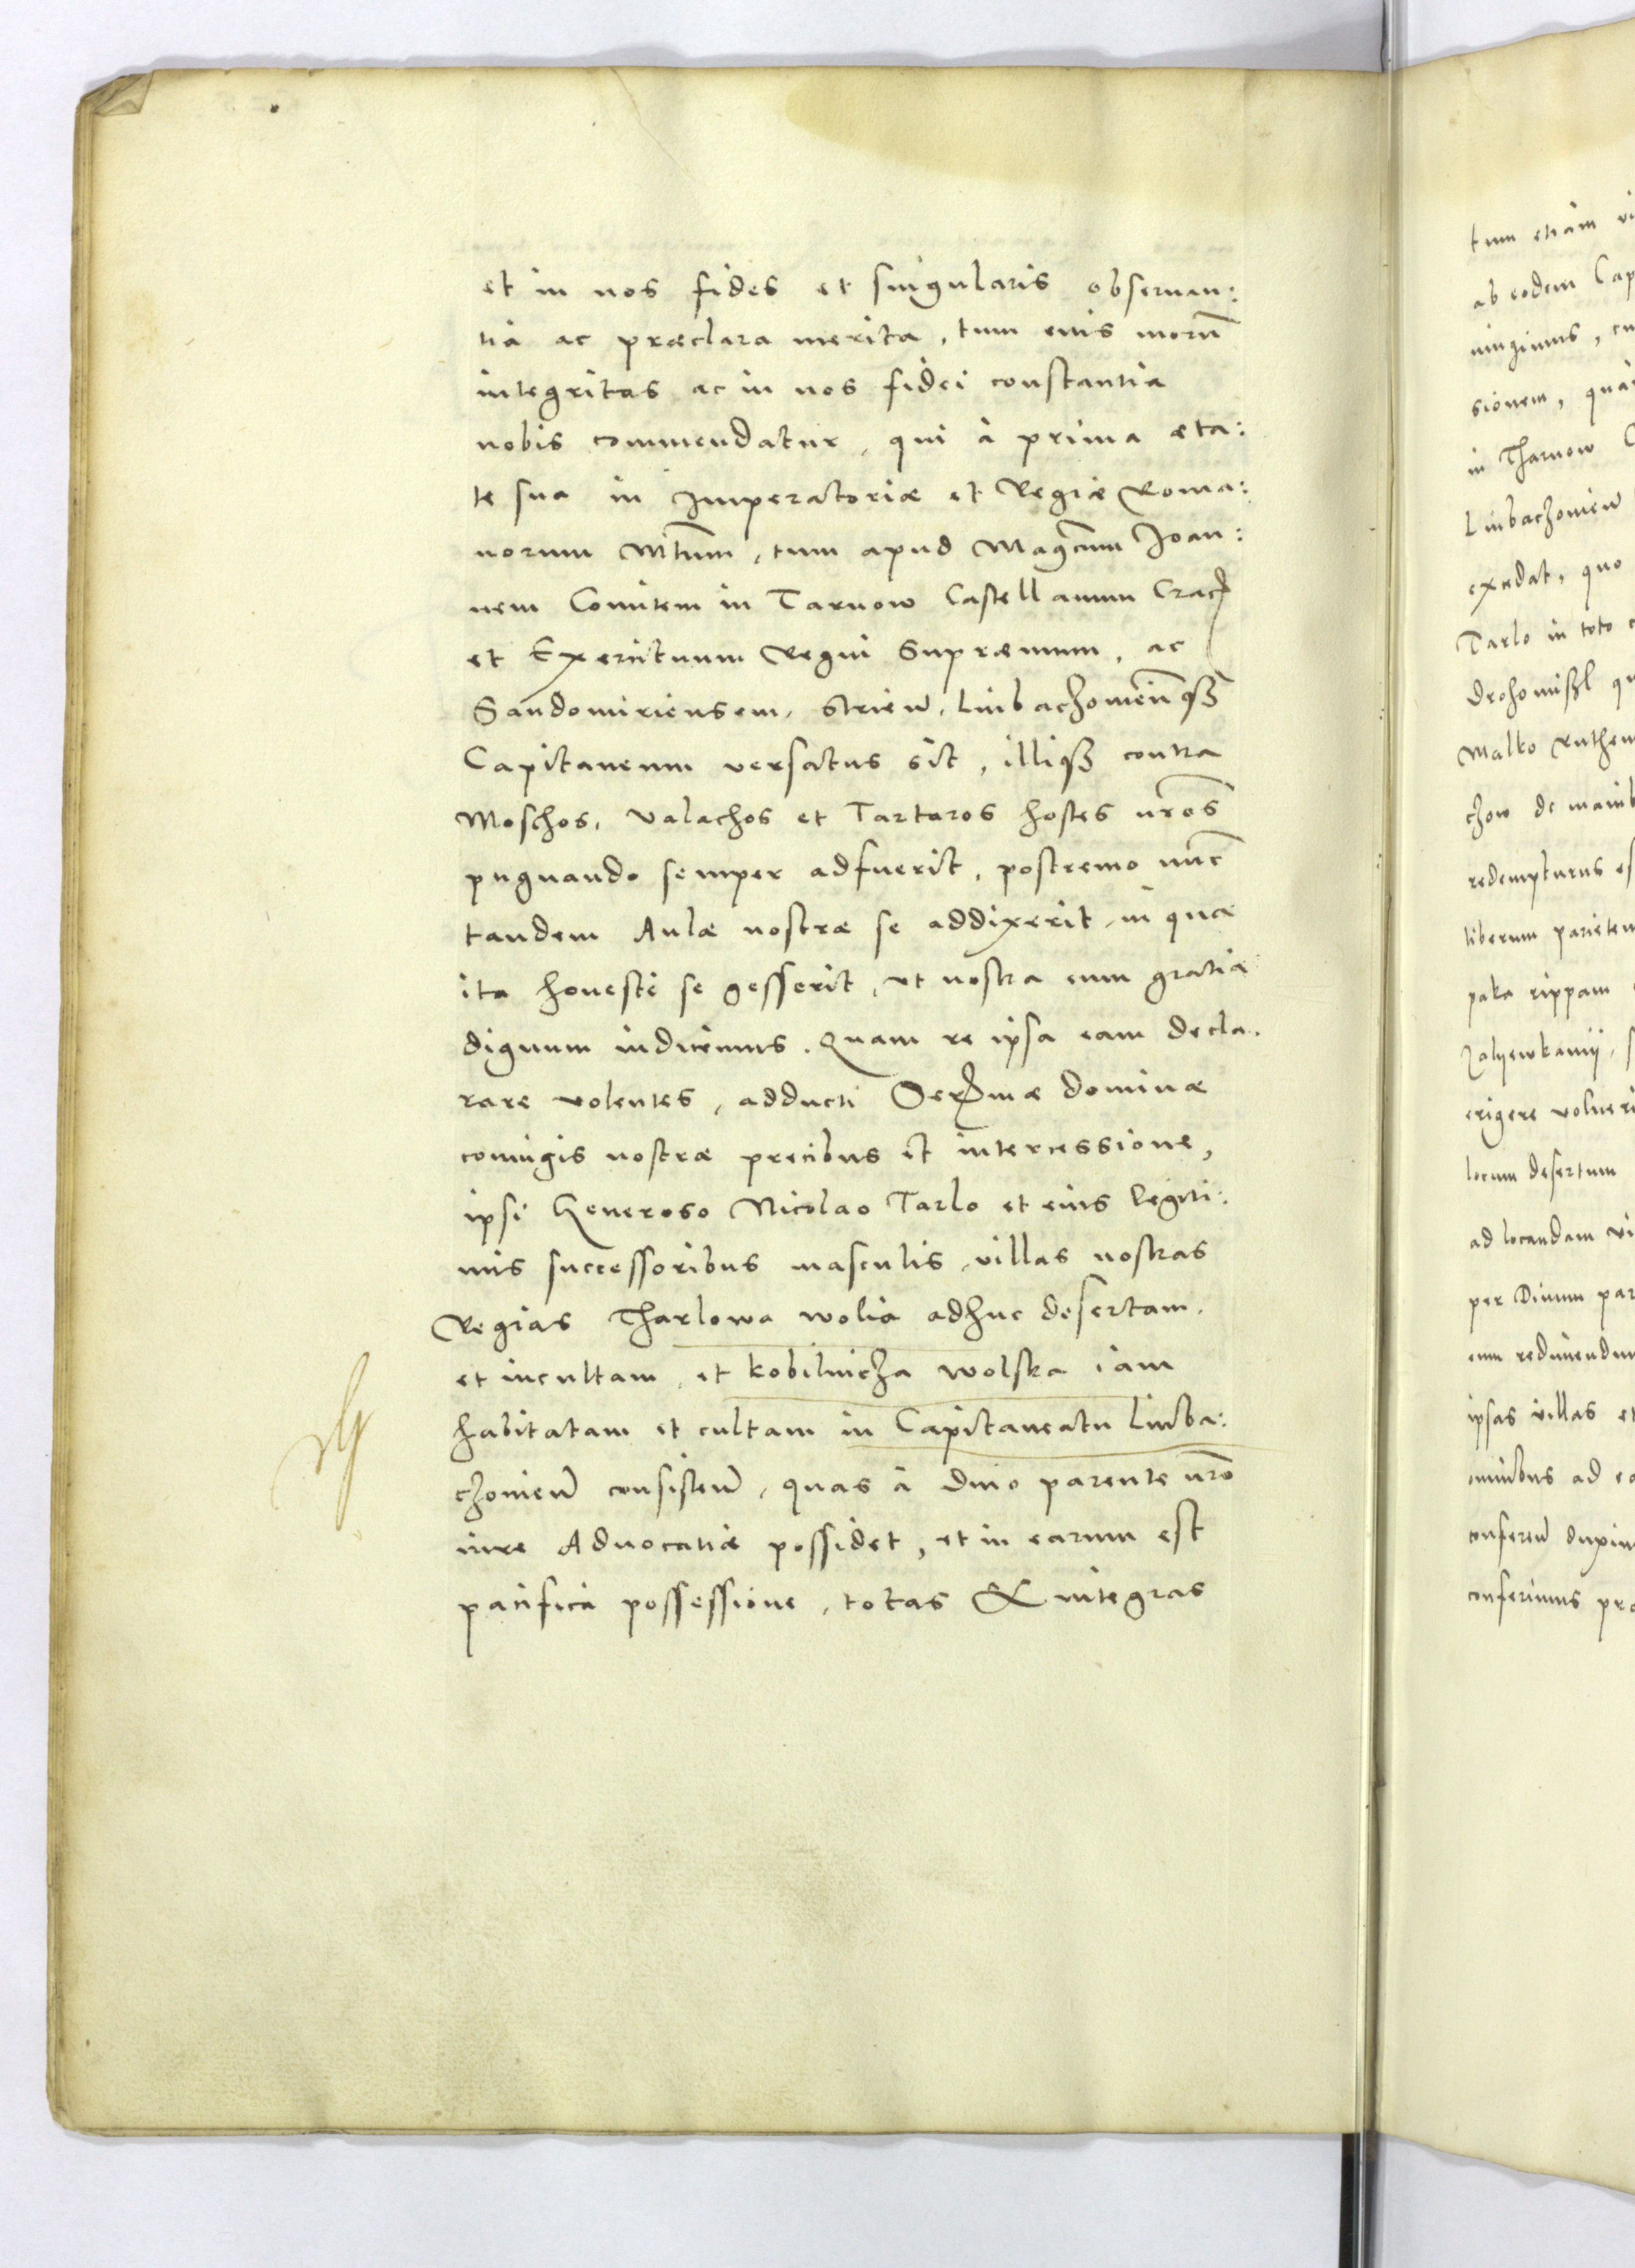 et in nos fides et singularis obseruan:
tia ac præclara merita, tum eius morũ
integritas ac in nos fidei constantia
nobis commendatur, qui à prima æta:
te sua in Imperatoriæ et Regiæ Roma:
norum Mtum, tum apud Magcum Joan:
nem Comitem in Tarnow Castellanum Crac
et Exercituum Regni Supræmum, ac
Sandomiriensem, Strien, Liubaczouienqȝ
Capitaneum versatus sit, illiqȝ contra
Moschos, Valachos et Tartaros hostes nros
pugnando semper adfuerit, postremo nũc
tandem Aulæ nostræ se addixerit, in qua
ita honestè se gesserit, vt nostra eum gratia
dignum iudicemus. Quam re ipsa eam decla.
rare volentes, adducti Sermæ Dominæ
coniugis nostræ precibus et intercessione,
ipsi Generoso Nicolao Tarlo et eius legiti:
mis successoribus masculis, villas nostras
Regias Tharlowa wolia adhuc desertam.
et incultam, et kobilnicza wolska iam
habitatam et cultam in Capitaneatu Liuba:
czouien consisten, quas à diuo parente nro
iure Aduocatiæ possidet, et in earum est
pacifica possessione, totas & integras
tum etiam
ab eodem Cap
sionem,
in Tharnow
Liubaczouien
exedat, quo
Tarlo in toto
Drohomisl
Malko Ruthen
czow de
redempturus
liberum parietem
paka rippam
erigere voluer
locum desertum
ad locandam
per Diuum par
eum redimendum
ipsas villas et
omnibus ad
conferimus pro